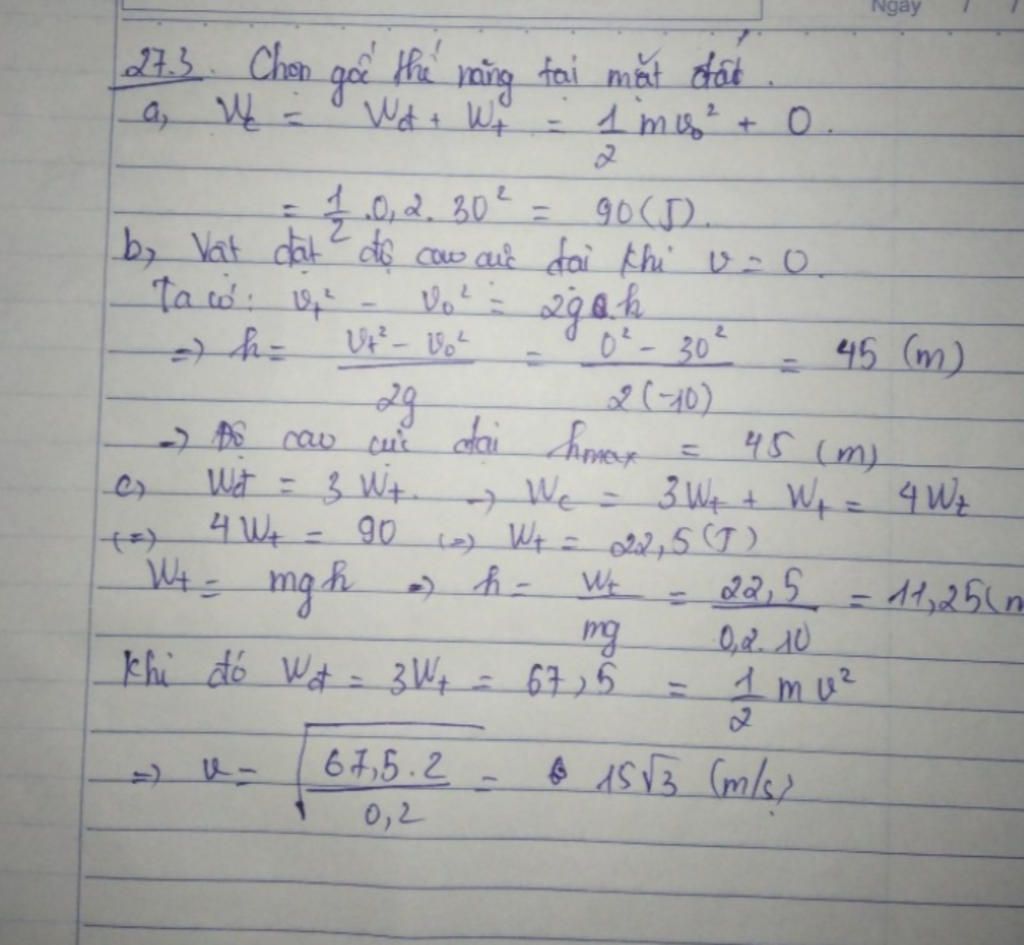 Ngày / /
27.3. Chọn gốc thế năng tại mặt đất.
a, Wc = Wđ + Wt = 1/2 mv₀² + 0.
= 1/2 .0,2. 30² = 90 (J).
b, Vật đạt độ cao cực đại khi v = 0.
Ta có: vt² - v₀² = 2g.h
=> h = (vt² - v₀²)/2g = (0² - 30²)/2(-10) = 45 (m)
-> Độ cao cực đại hmax = 45 (m)
c, Wđ = 3Wt. -> Wc = 3Wt + Wt = 4Wt
(=) 4Wt = 90 (=) Wt = 22,5 (J)
Wt = mgh => h = Wt/mg = 22,5/0,2.10 = 11,25 (m
Khi đó Wđ = 3Wt = 67,5 = 1/2 mv²
=> v = √(67,5.2/0,2) = 15√3 (m/s)